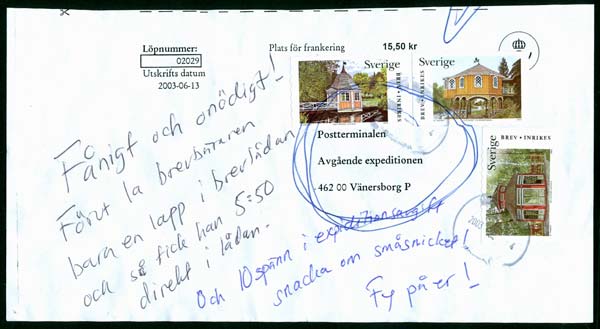 Löpnummer:
02029
Utskrifts datum
2003-06-13
Plats för frankering
15,50 kr
Sverige
BREV • INRIKES
Sverige
BREV • INRIKES
Sverige
BREV • INRIKES
2003
Postterminalen
Avgående expeditionen
462 00 Vänersborg P
Fånigt och onödigt!
Förut la brevbäraren
bara en lapp i brevlådan
och så fick han 5:50
direkt i lådan.
Och 10 spänn i expeditionsavgift
snacka om småsnicket!
Fy på er!